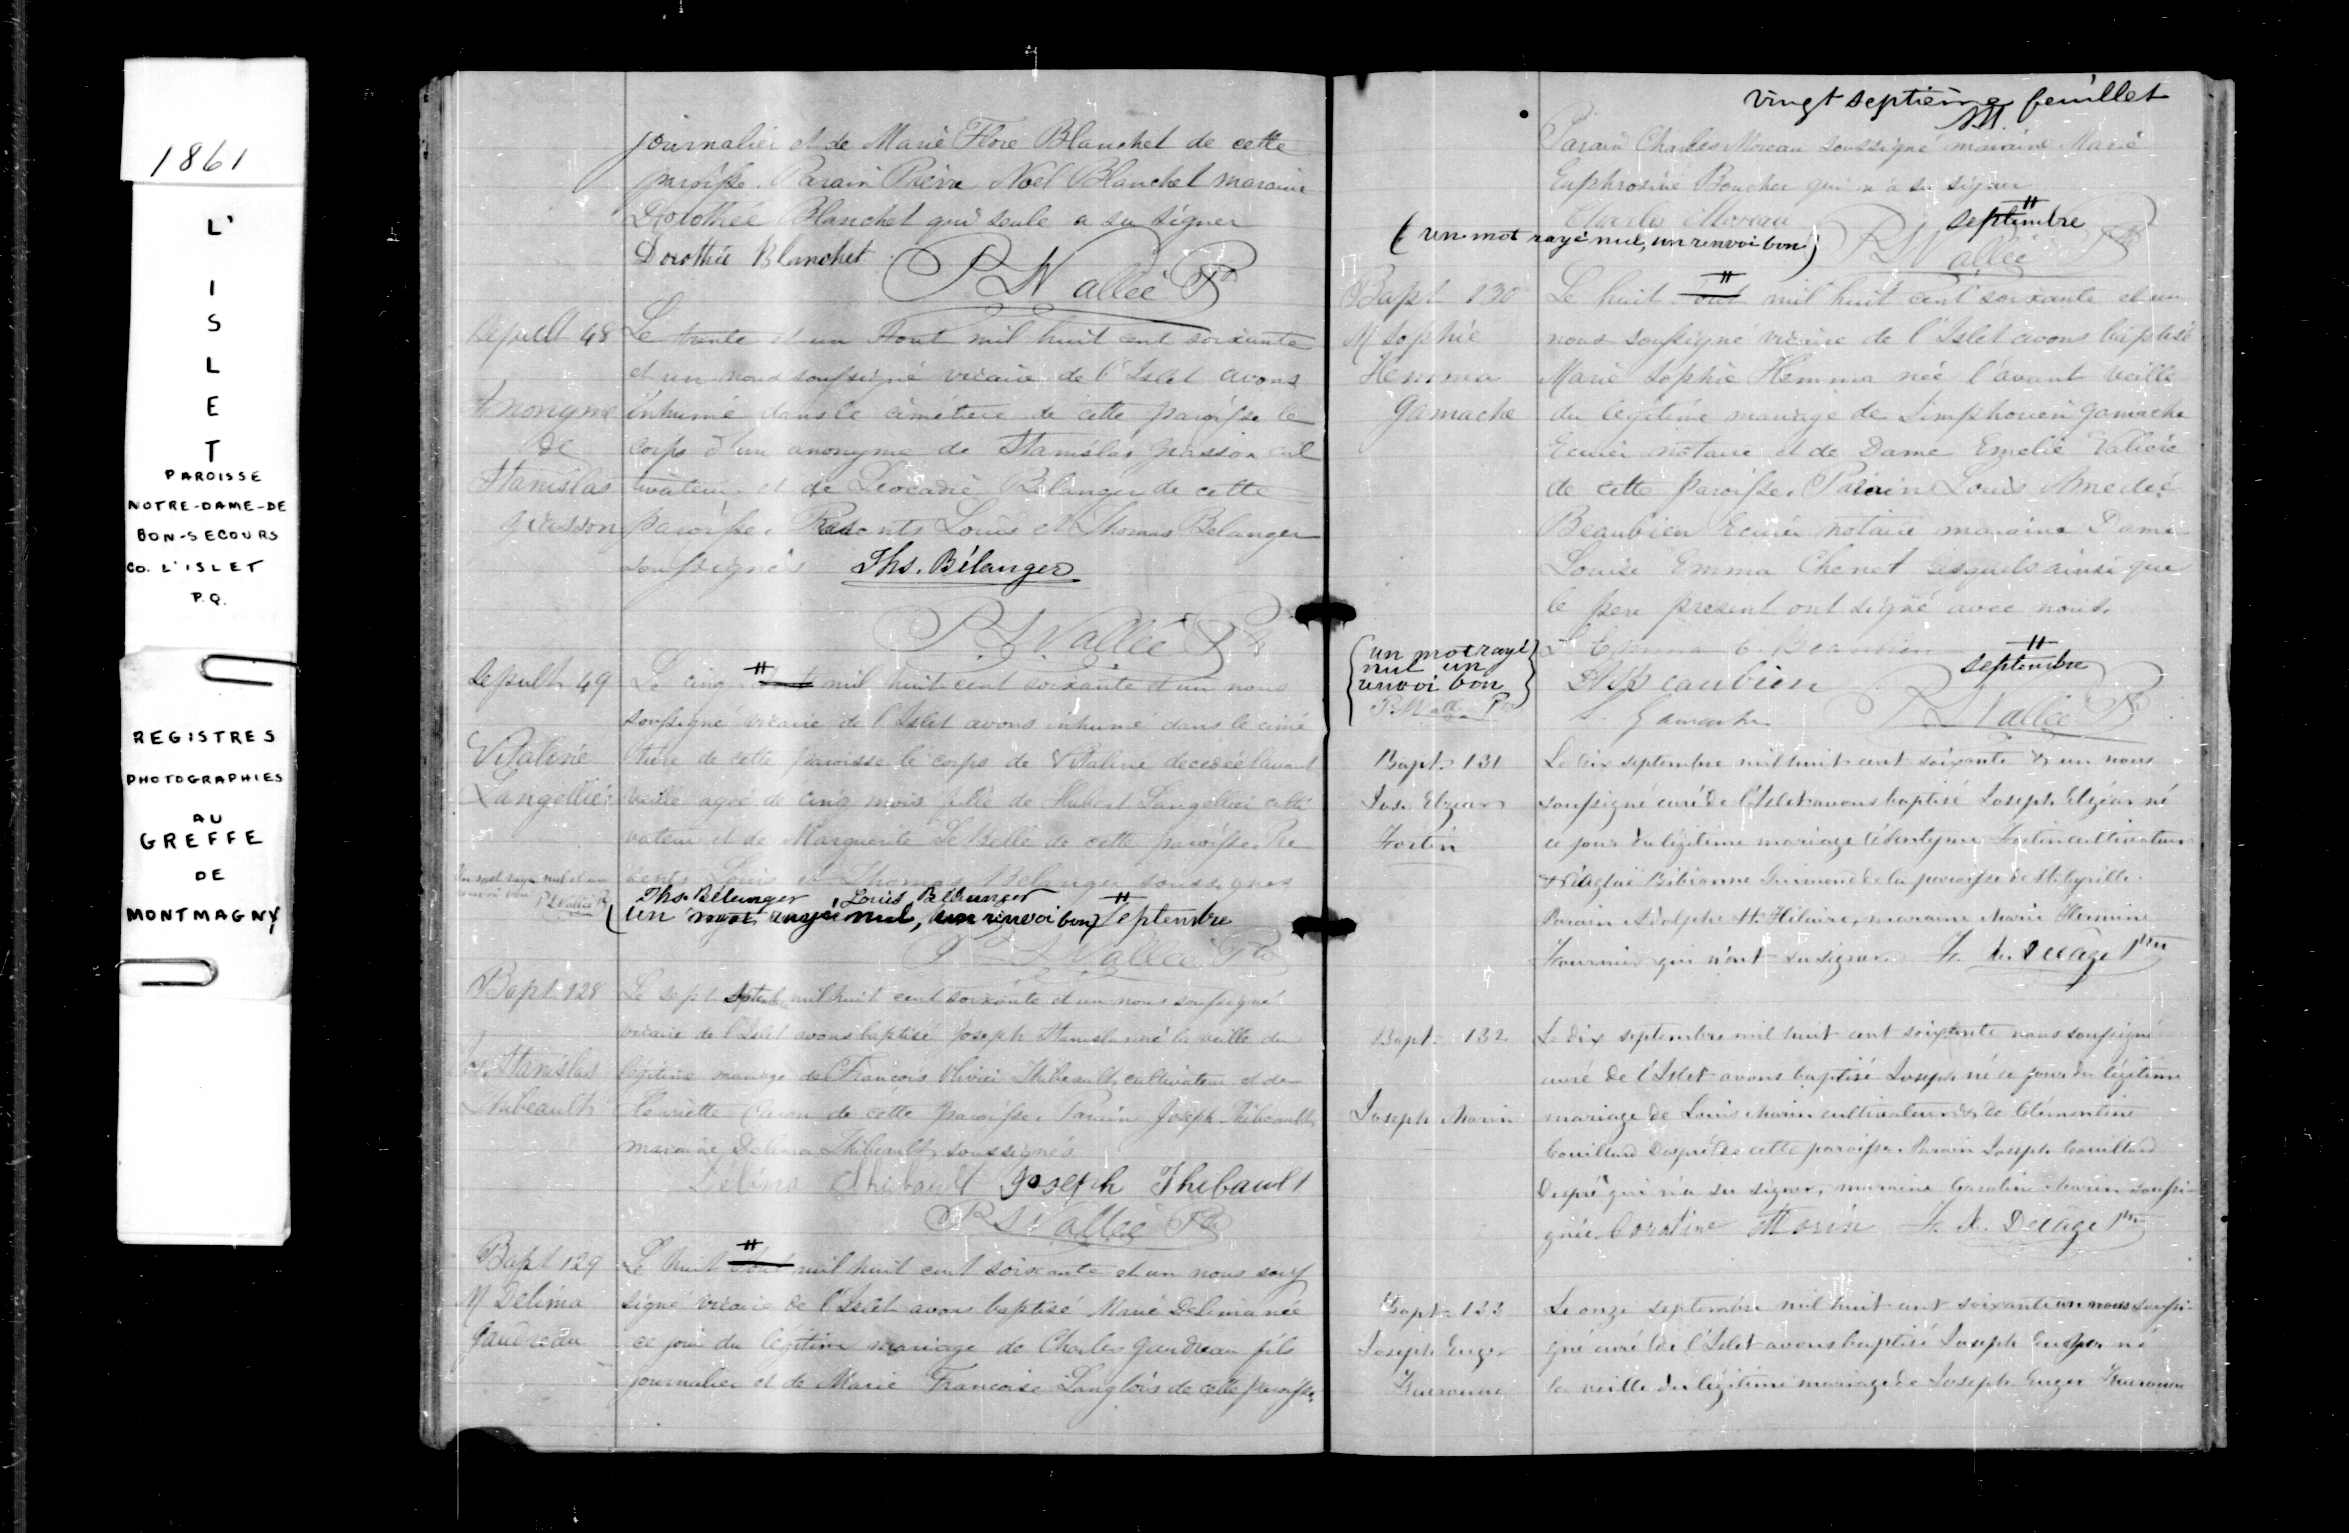 1861
L'
I
S
L
E
T
PAROISSE
NOTRE-DAME-DE
BON-SECOURS
CO. L'ISLET
P.Q.
REGISTRES
PHOTOGRAPHIES
AU
GREFFE
DE
MONTMAGNY
journalier et de Marie Flore Blanchet de cette
paroisse. Parain Pierre Noël Blanchet maraine
Dorothée Blanchet qui seule a su signer
Dorothée Blanchet
P S Vallée Ptr
Sepult 48
Anonyme
de
Stanislas
Le trente et un Aout mil huit cent soixante
et un nous soussigné vicaire de l'Islet avons
inhumé dans le cimétiere de cette paroisse le
corps d'un anonyme de Stanislas cul
tivateur et de Leocadie Belanger de cette
paroisse. Louis et Thomas Belanger
soussignés Ths. Bélanger
P. S. Vallée Ptr
Sepult 49
Vitaline
Langellier
Le cinq mil huit cent soixante et un nous
soussigné vicaire de l'Islet avons inhumé dans le cimé
tière de cette paroisse le corps de Vitaline decedée l'avant
veille agée de cinq mois fille de Hubert Langellier culti
vateur et de Marguerite de cette paroisse. Pre
sents Louis et Thomas Belanger soussignés
Ths. Bélanger Louis Bellanger
(un mot rayé nul, un renvoi bon) # Septembre
P S Vallée Ptr
Bapt 128
Jos. Stanislas
Thibeault
Le sept mil huit cent soixante et un nous soussigné
vicaire de l'Islet avons baptisé Joseph Stanislas né la veille du
légitime mariage de Francois Olivier Thibeault, cultivateur et de
Henriette Caron de cette paroisse. Parain Joseph Thibeault
maraine Delima Thibeault soussignés
Délima Thibault Joseph Thibault
P S Vallée Ptr
Bapt 129
M Delima
Gaudreau
Le huit # mil huit cent soixante et un nous sous
signé vicaire de l'Islet avons baptisé Marie Delima née
ce jour du légitime mariage de Charles Gaudreau fils
journalier et de Marie Francoise Langlois de cette paroisse.
vingt septième feuillet
Parain Charles Moreau soussigné maraine Marie
Euphrosine Boucher qui n'a su signer
Charles Moreau
# septembre
(un mot rayé nul, un renvoi bon)
P S Vallée Ptr
Bapt 130
M Sophie
Hemma
Gamache
Le huit # mil huit cent soixante et un
nous soussigné vicaire de l'Islet avons baptisé
Marie Sophie Hemma née l'avant veille
du légitime mariage de Simphorien Gamache
Ecuier notaire et de Dame Emelie
de cette paroisse. Parain Louis Amedée
Beaubien Ecuier notaire maraine Dame
Louise Emma Chenet lesquels ainsi que
le pere present ont signé avec nous.
L Emma C. Beaubien
# septembre
(un mot rayé
nul un
renvoi bon)
Gamache
P S Vallée Ptr
Bapt. 131
Jos. Elzear
Fortin
Le dix septembre mil huit cent soixante & un nous
soussigné curé de l'Islet avons baptisé Joseph Elzéar né
ce jour du légitime mariage Fortin cultivateur
Bibianne de la paroisse de St Cyrille.
Parain Adolphe St. Hilaire, maraine Marie Hermine
Fournier qui n'ont su signer. F. X. Delâge Ptre
Bapt. 132
Joseph Morin
Le dix septembre mil huit cent soixante nous soussigné
curé de l'Islet avons baptisé Joseph né ce jour du légitime
mariage de Louis Morin cultivateur & de Clémentine
Couillard Després de cette paroisse. Parain Joseph Couillard
Després qui n'a su signer, maraine Caroline Morin soussi-
gnée Caroline Morin F. X. Delâge Ptre
Bapt. 133
Joseph Euger
Le onze septembre mil huit cent soixante un nous soussi-
gné curé de l'Islet avons baptisé Joseph né
la veille du légitime mariage de Joseph Euger